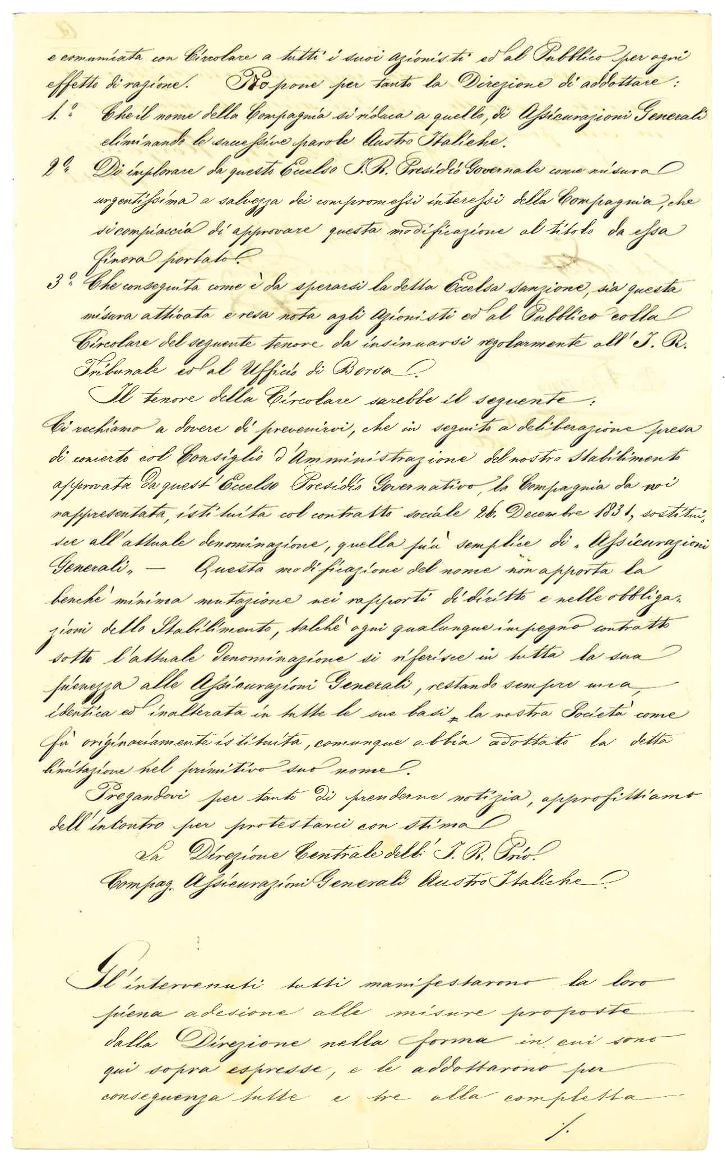 e comunicata con Circolare a tutti i suoi azionisti ed al Pubblico per ogni
effetto di razione. Propone per tanto la Direzione di addottare:
1.º Che il nome della Compagnia si riduca a quello, di Assicurazioni Generali
eliminando le successive parole Austro Italiche.
2.º Di implorare da questo Eccelso I. R. Presidio Governale come misura
urgentissima a salvezza dei compromessi interessi della Compagnia, che
si compiaccia di approvare questa modificazione al titolo da essa
finora portato.
3.º Che conseguita come è da sperarsi la detta Eccelsa sanzione, sia questa
misura attivata e resa nota agli azionisti ed al Pubblico colla
Circolare del seguente tenore da insinuarsi regolarmente all' I. R.
Tribunale ed al Ufficio di Borsa.
Il tenore della Circolare sarebbe il seguente:
Ci rechiamo a dovere di prevenirvi, che in seguito a deliberazione presa
di concerto col Consiglio d'Amministrazione del nostro stabilimento
approvata da quest' Eccelso Presidio Governativo, la Compagnia da noi
rappresentata, istituita col contratto sociale 26. Decembre 1831, sostitui-
sce all'attuale denominazione, quella più semplice di „ Assicurazioni
Generali„ — Questa modificazione del nome non apporta la
benchè minima mutazione nei rapporti di diritto e nelle obbliga-
zioni dello Stabilimento, talchè ogni qualunque impegno contratto
sotto l'attuale denominazione si riferisce in tutta la sua
pienezza alle Assicurazioni Generali, restando sempre una,
identica ed inalterata in tutte le sue basi, la nostra Società come
fù originariamente istituita, comunque abbia adottato la detta
limitazione nel primitivo suo nome.
Pregandovi per tanto di prenderne notizia, approfittiamo
dell'incontro per protestarci con stima
La Direzione Centrale dell' I. R. Priv.
Compag. Assicurazioni Generali Austro Italiche.
Gl'intervenuti tutti manifestarono la loro
piena adesione alle misure proposte
dalla Direzione nella forma in cui sono
qui sopra espresse, e le addottarono per
conseguenza tutte e tre alla completta
./.